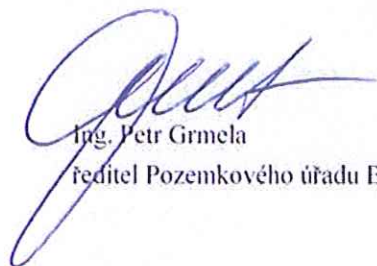 Ing. Petr Grmela
ředitel Pozemkového úřadu B